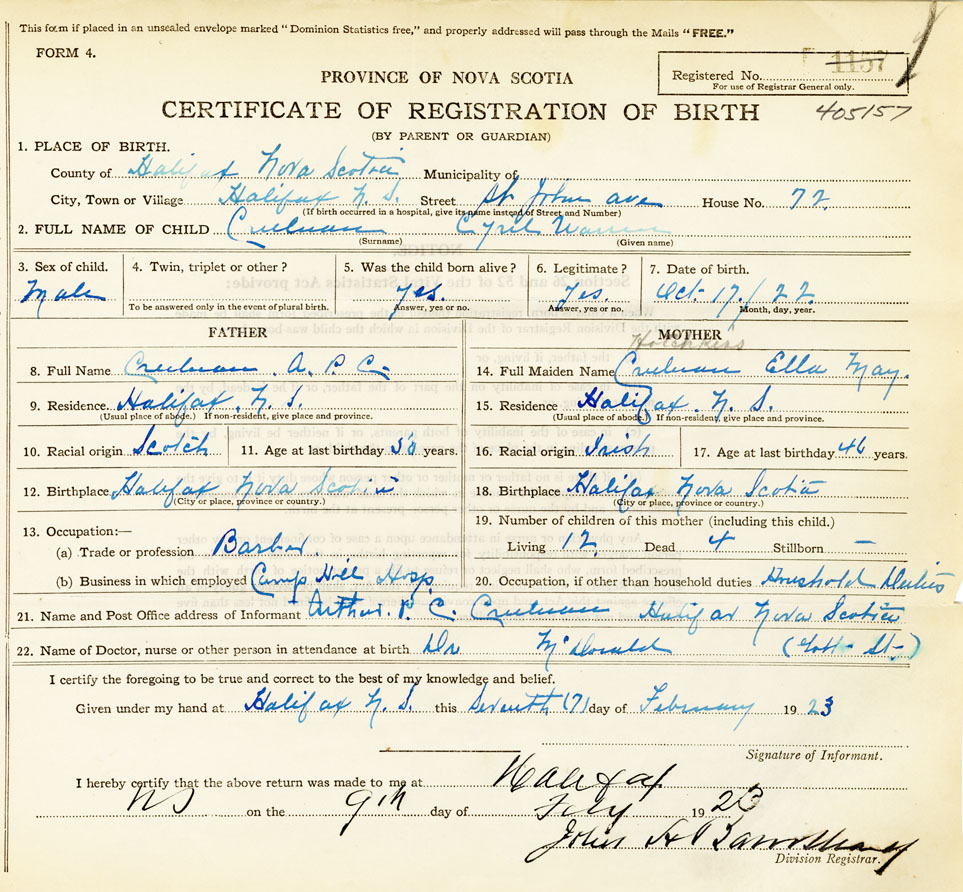 This form if placed in an unsealed envelope marked "Dominion Statistics free," and properly addressed will pass through the Mails "FREE."
FORM 4.
1157
PROVINCE OF NOVA SCOTIA
Registered No.
For use of Registrar General only.
CERTIFICATE OF REGISTRATION OF BIRTH
405157
(BY PARENT OR GUARDIAN)
1. PLACE OF BIRTH.
County of Halifax Nova Scotia Municipality of
City, Town or Village Halifax N. S. Street St John ave House No. 72
(If birth occurred in a hospital, give its name instead of Street and Number)
2. FULL NAME OF CHILD Creelman Cyril Warren
(Surname) (Given name)
3. Sex of child. 4. Twin, triplet or other ? 5. Was the child born alive ? 6. Legitimate ? 7. Date of birth.
Male Yes. Yes. Oct 17./22.
To be answered only in the event of plural birth. Answer, yes or no. Answer, yes or no. Month, day, year.
FATHER MOTHER
Hotchkiss
8. Full Name Creelman. A. P. C. 14. Full Maiden Name Creelman Ella May.
9. Residence Halifax. N. S. 15. Residence Halifax. N. S.
(Usual place of abode.) If non-resident, give place and province. (Usual place of abode.) If non-resident, give place and province.
10. Racial origin Scotch 11. Age at last birthday 50 years. 16. Racial origin Irish 17. Age at last birthday 46 years.
12. Birthplace Halifax Nova Scotia 18. Birthplace Halifax Nova Scotia
(City or place, province or country.) (City or place, province or country.)
13. Occupation:— 19. Number of children of this mother (including this child.)
(a) Trade or profession Barber Living 12. Dead 4 Stillborn —
(b) Business in which employed Camp Hill Hosp. 20. Occupation, if other than household duties Houshold Duties
21. Name and Post Office address of Informant Arthur. P. C. Creelman Halifax Nova Scotia
22. Name of Doctor, nurse or other person in attendance at birth Dr McDonald St-)
I certify the foregoing to be true and correct to the best of my knowledge and belief.
Given under my hand at Halifax N. S. this Seventh (7) day of February 1923
Signature of Informant.
I hereby certify that the above return was made to me at Halifax
NS on the 9th day of Feby 1923
John
Division Registrar.